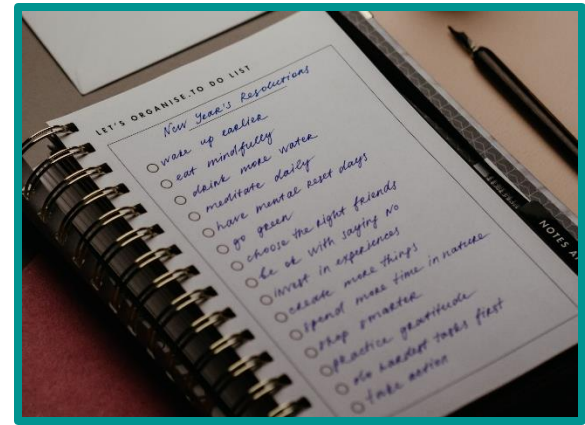 LET'S ORGANISE. TO DO LIST
New Year's Resolutions
wake up earlier
eat mindfully
drink more water
meditate daily
have mental reset days
go green
choose the right friends
be ok with saying NO
invest in experiences
create more things
spend more time in nature
shop smarter
practice gratitude
do hardest tasks first
take action
NOTES